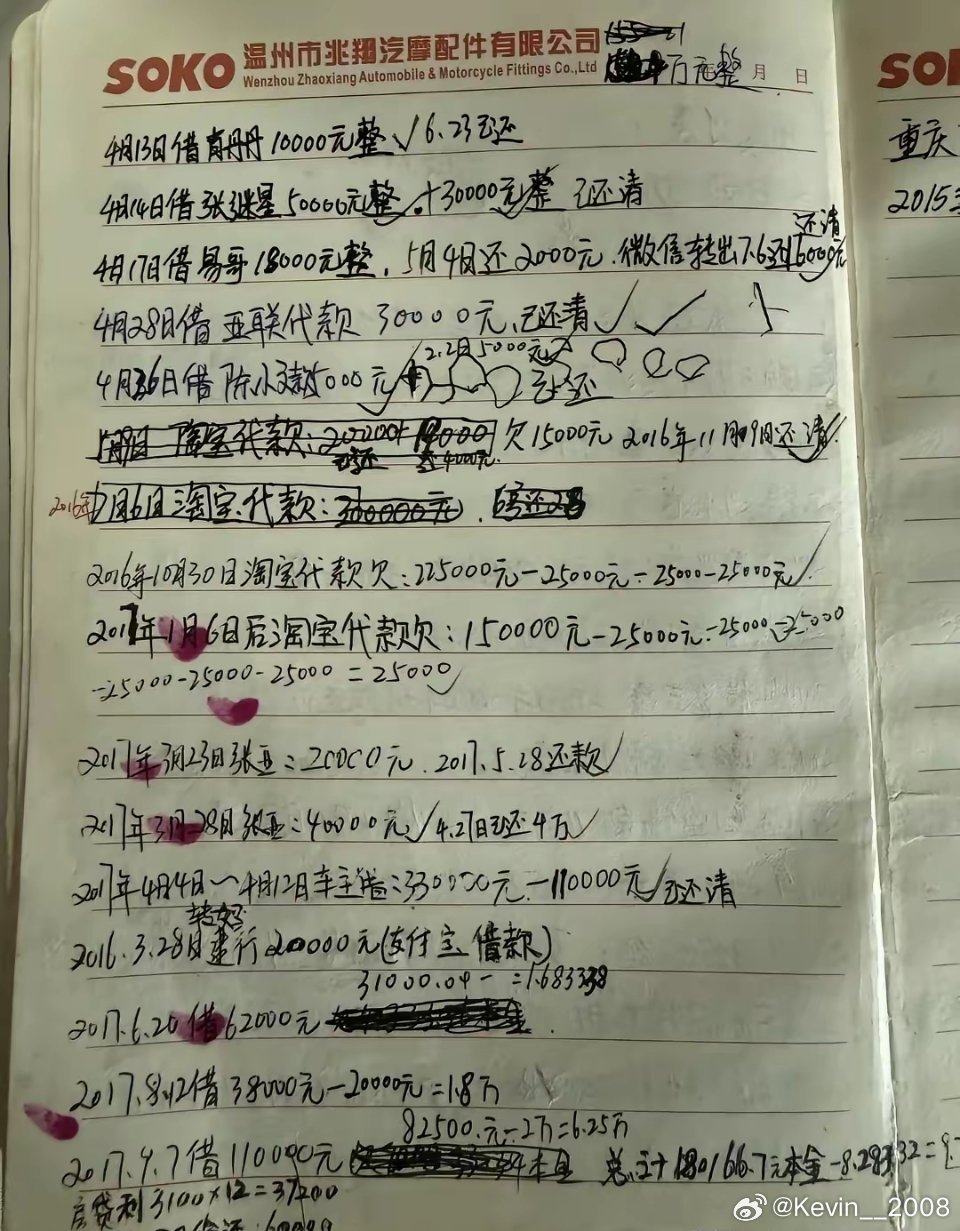 SOKO 温州市兆翔汽摩配件有限公司
Wenzhou Zhaoxiang Automobile & Motorcycle Fittings Co.,Ltd
万元整 月 日
4月13日借肖丹丹10000元整√6.23已还
4月14日借张继星50000元整√+30000元整 已还清
还清
4月17日借易哥18000元整,5月4日还2000元.微信转出7.6还16000元
4月28日借亚联代款30000元,已还清√√
2.2日5000元
4月26日借陈小 5000元 已还
淘宝代款: 欠15000元 2016年11月9日还清√
还4000元
2016年7月6日淘宝代款:300000元.
2016年10月30日淘宝代款欠:225000元-25000元-25000-25000元√
2017年1月6日后淘宝代款欠:150000元-25000元-25000-25000
-25000-25000-25000=25000√
2017年3月23日张亚:20000元.2017.5.28还款√
2017年3月28日张亚:40000元√4.27日已还4万√
2017年4月4日~4月12日车主 :330000元-110000元√已还清
2016.3.28日建行20000元(支付宝借款)
31000.04- =1.68333
2017.6.20借62000元
2017.8.12借38000元-20000元=1.8万
82500.元-2万=6.25万
2017.9.7借110000元 总计180166.7元本金-8.28332=9.
房贷利3100×12=37200
重庆
2015
SO
@Kevin__2008